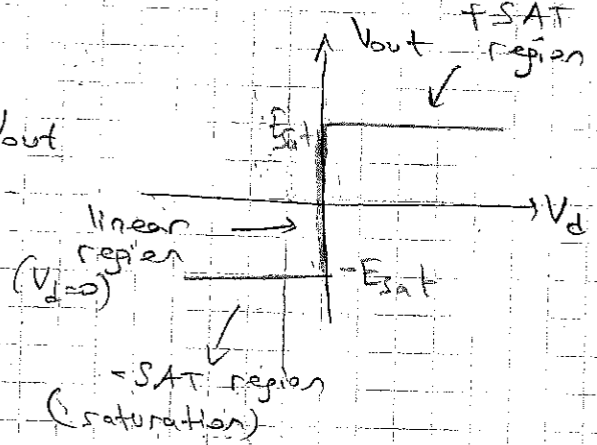 +SAT
region
Vout
Vout
Esat
Vd
linear
region
(Vd=0)
-Esat
-SAT region
(saturation)